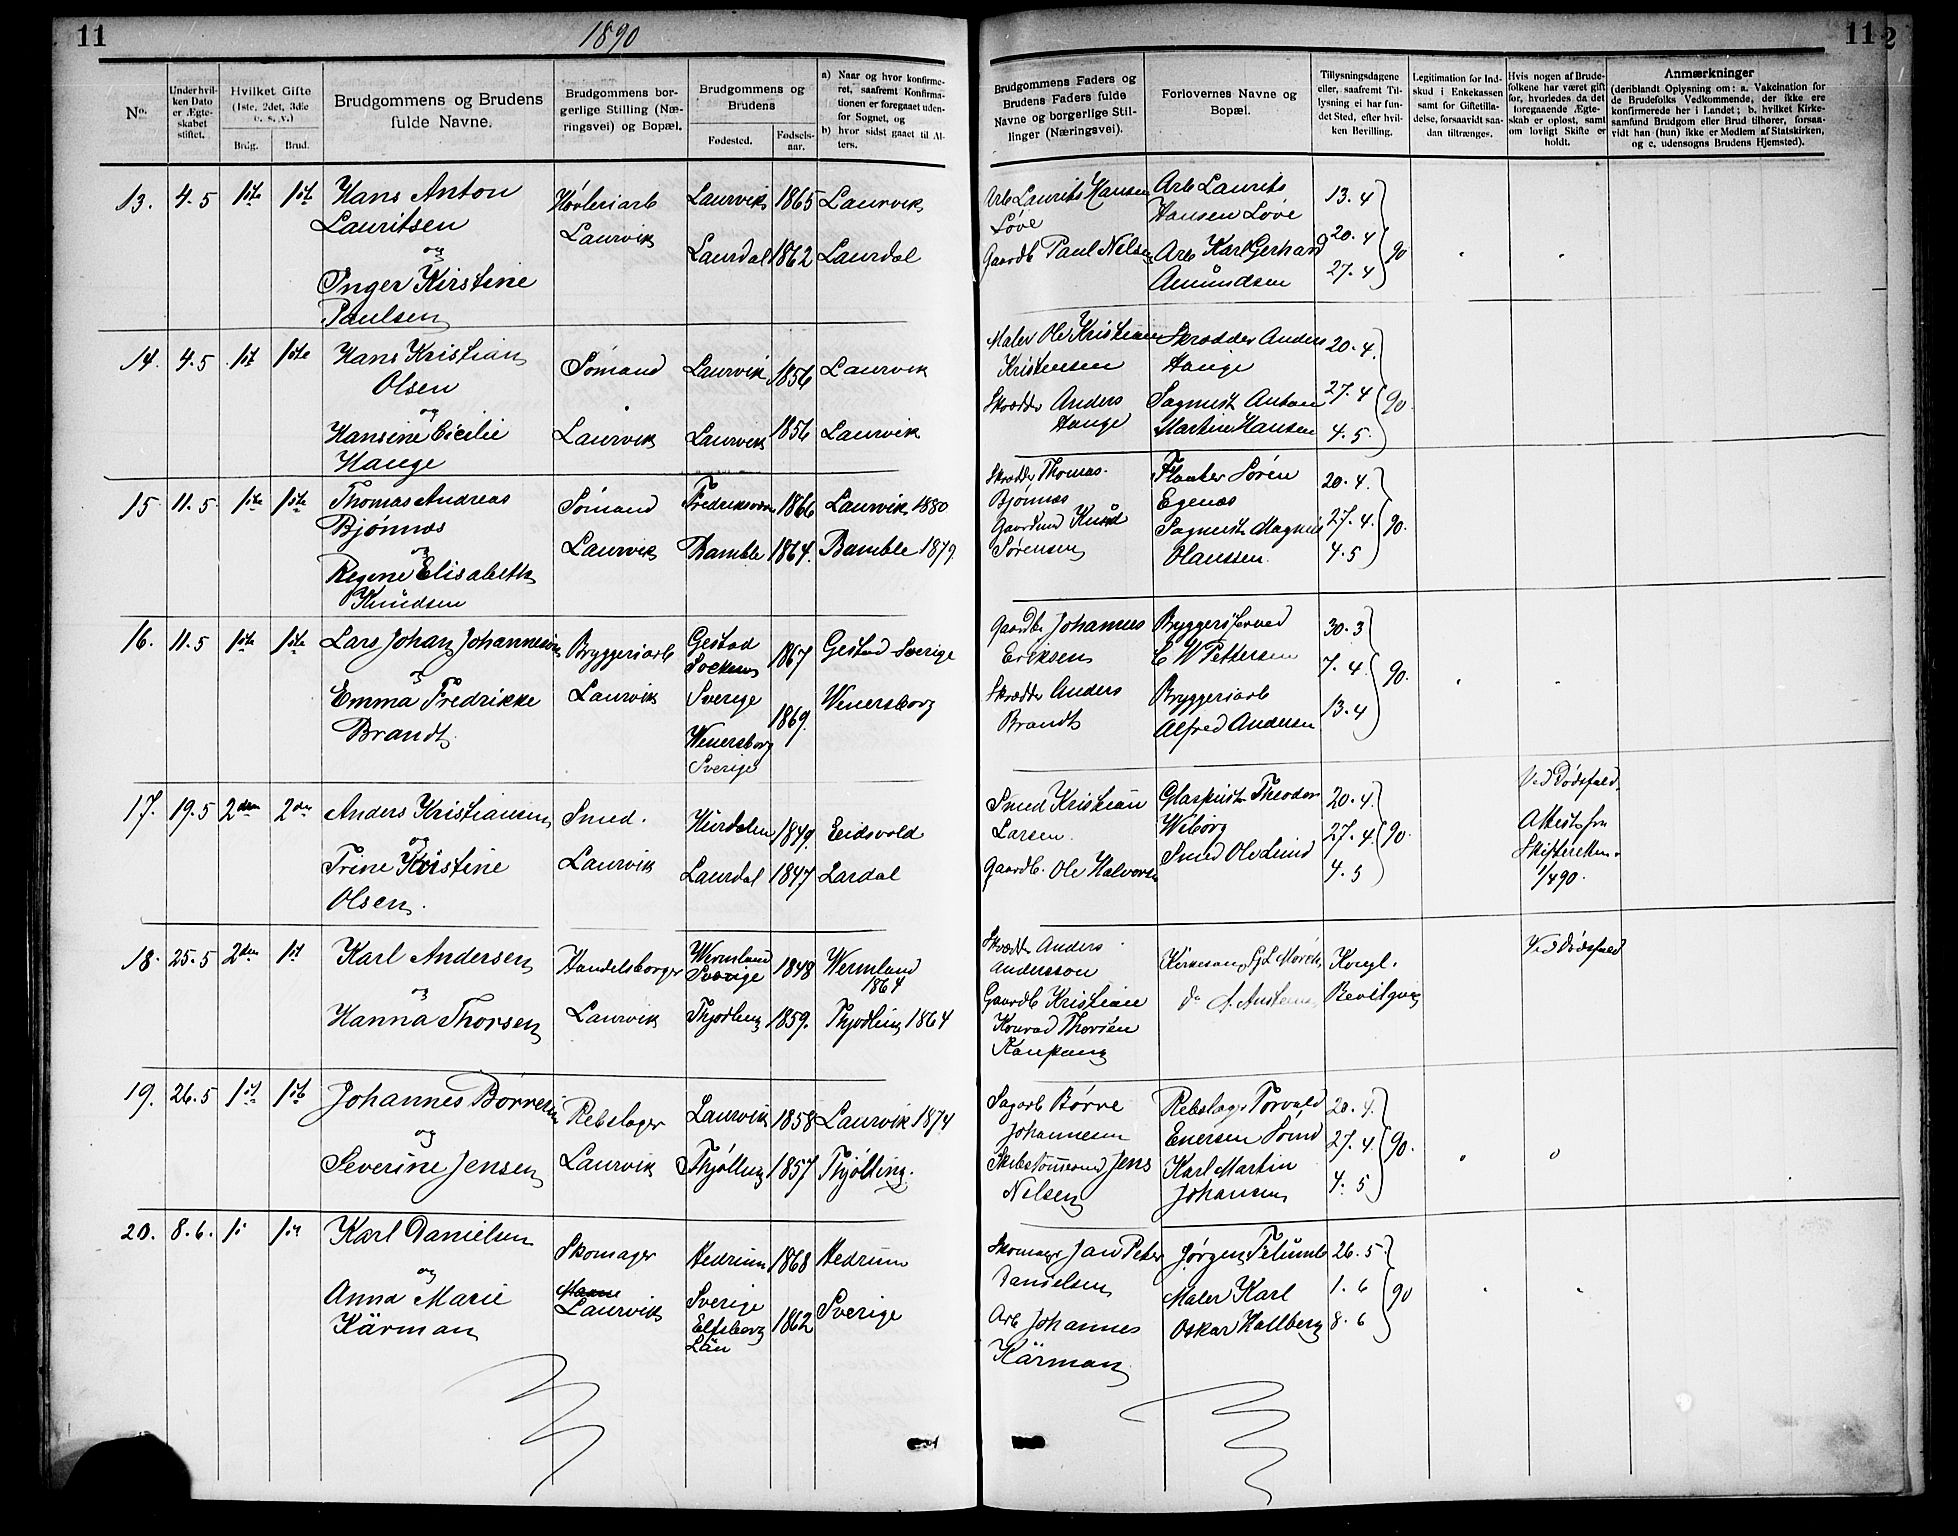 11
1890
11 2
No.
Under hvil-
ken Dato
er Ægte-
skabet
stiftet.
Hvilket Gifte
(1ste, 2det, 3die
o. s. v.)
Brdg.
Brud.
Brudgommens og Brudens
fulde Navne.
Brudgommens bor-
gerlige Stilling (Næ-
ringsvei) og Bopæl.
Brudgommens og
Brudens
Fødested.
Fødsels-
aar.
a) Naar og hvor konfirme-
ret, saafremt Konfirma-
tionen er foregaaet uden-
for Sognet, og
b) hvor sidst gaaet til Al-
ters.
Brudgommens Faders og
Brudens Faders fulde
Navne og borgerlige Stil-
linger (Næringsvei).
Forlovernes Navne og
Bopæl.
Tillysningsdagene
eller, saafremt Til-
lysning ei har fun-
det Sted, efter hvil-
ken Bevilling.
Legitimation for Ind-
skud i Enkekassen
samt for Giftetilla-
delse, forsaavidt saa-
dan tiltrænges.
Hvis nogen af Brude-
folkene har været gift
før, hvorledes da det
foregaaende Ægte-
skab er opløst, samt
om lovligt Skifte er
holdt.
Anmærkninger
(deriblandt Oplysning om: a. Vakcination for
de Brudefolks Vedkommende, der ikke ere
konfirmerede her i Landet; b. hvilket Kirke-
samfund Brudgom eller Brud tilhører, forsaa-
vidt han (hun) ikke er Medlem af Statskirken,
og c. udensogns Brudens Hjemsted).
13. 4.5 1ste 1ste Hans Anton
Lauritsen
og
Inger Kirstine
Paulsen
Høvleriarb
Laurvik
Laurvik 1865 Laurvik
Laurdal 1862 Laurdal
Arb Laurits Hansen
Løve
Gaardb Paul Nilsen
Arb Laurits
Hansen Løve
Arb Karl Gerhard
Amundsen
13.4
20.4 90
27.4
14. 4.5 1ste 1ste Hans Kristian
Olsen
og
Hansine Cicilie
Hauge
Sømand
Laurvik
Laurvik 1856 Laurvik
Laurvik 1856 Laurvik
Maler Ole Kristian
Kristensen
Skrædder Anders
Hauge
Skrædder Anders
Hauge
Sagmest. Anton
Martin Hansen
20.4
27.4 90.
4.5.
15 11.5. 1ste 1ste Thomas Andreas
Bjønnæs
og
Regine Elisabeth
Knudsen
Sømand
Laurvik
Fredriksværn 1866 Laurvik 1880
Bamble 1864. Bamble 1879.
Skrædder Thomas
Bjønnæs
Gaardmd Knud
Sørensen
Flanter Søren
Egenæs
Sagmest. Magnus
Olaussen
20.4.
27.4. 90.
4.5
16. 11.5 1ste 1ste Lars Johan Johannessen
og
Emma Fredrikke
Brandt.
Bryggeriarb
Laurvik
Gestad
Sockens
Sverige
1867 Gestad Sverige
Wenersborg
Sverige
1869. Wenersborg
Gaardb Johannes
Eriksen
Skrædder Anders
Brandt
C W Pettersen
Bryggeriarb
Alfred Andersen
30.3
7.4 90.
13.4
17. 19.5 2den 2den Anders Kristiansen
og
Trine Kristine
Olsen.
Smed.
Laurvik
Hurdalen 1849. Eidsvold
Laurdal 1847 Lardal
Smed Kristian
Larsen.
Gaardb. Ole Halvorsen
Glaspuster Theodor
Wiborg
Smed Ole Lund
20.4.
27.4. 90.
4.5
Ved Dødsfald.
Attest fra
Skifteretten
1/4 90.
18. 25.5 2den 1st Karl Andersen
og
Hanna Thorsen
Handelsborger
Laurvik
Wermland
Sverige
1848 Wermland
1864
Thjødling 1859. Thjødling 1864
Skrædder Anders
Andersson
Gaardb Kristian
Konrad Thorsen
Kaupang
Kongl.
Bevilgning
Ved Dødsfald
19. 26.5 1st 1st Johannes Børresen
og
Severine Jensen
Rebslager
Laurvik
Laurvik 1858 Laurvik 1874
Thjølling 1857 Thjølling.
Sagarb Børre
Johannesen
Skibstømmermd Jens
Nilsen
Rebslager Torvald
Enersen Lund
Karl Martin
Johansen
20.4.
27.4. 90.
4.5
20. 8.6. 1st 1ste Karl Danielsen
og
Anna Marie
Kärman
Skomager
Laurvik
Hedrum 1868 Hedrum
Sverige
Elfsborg
Län
1862 Sverige
Skomager Jan Peter
Danielsen
Arb Johannes
Kärman.
Jørgen Felumb
Maler Karl
Oskar Hallberg
26.5
1.6 90
8.6